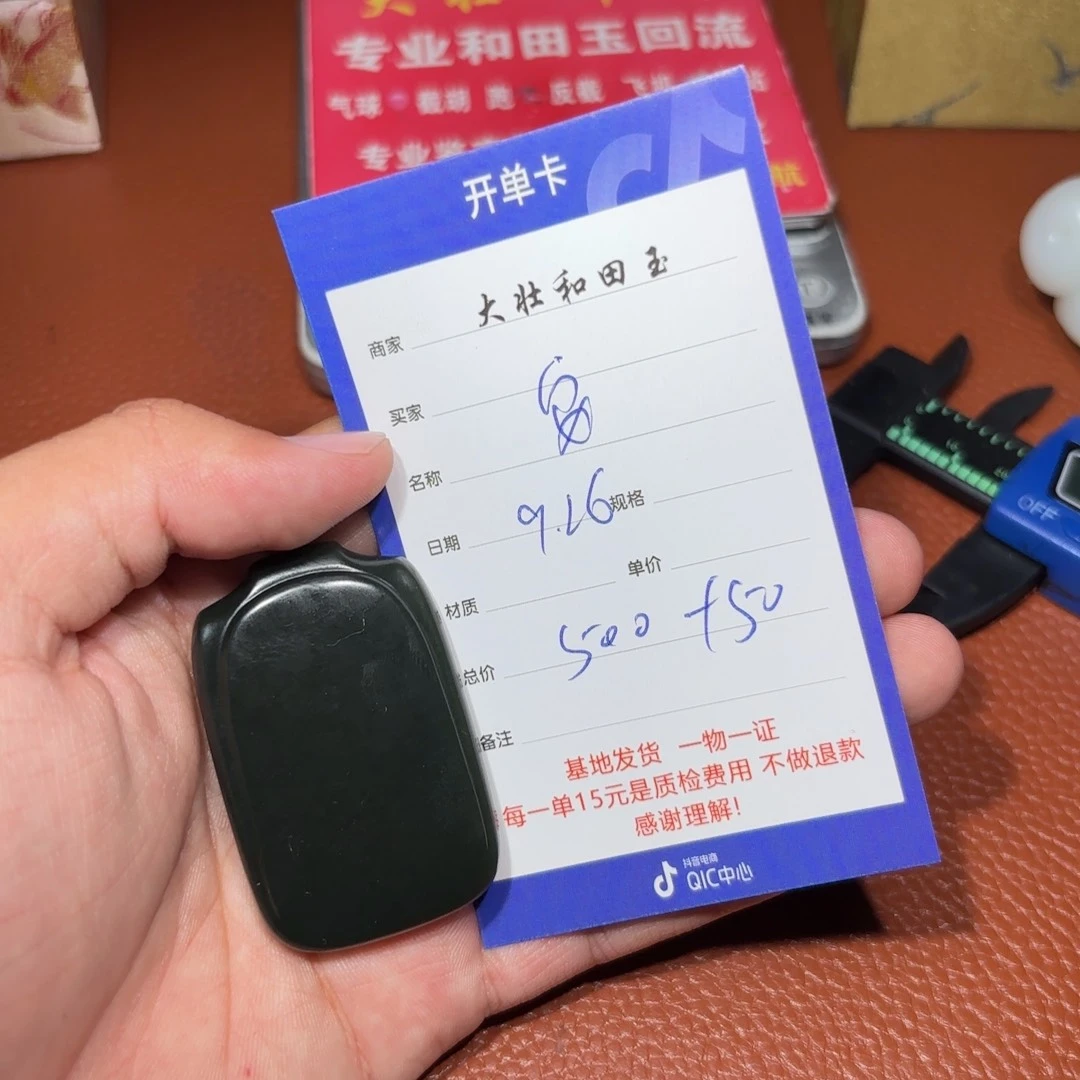 专业和田玉回流
气球 截胡 跑
开单卡
商家 大壮和田玉
买家
名称
日期 9.16 规格
材质 单价
总价 500 +50
备注
基地发货 一物一证
每一单15元是质检费用 不做退款
感谢理解!
抖音电商
QIC中心
OFF